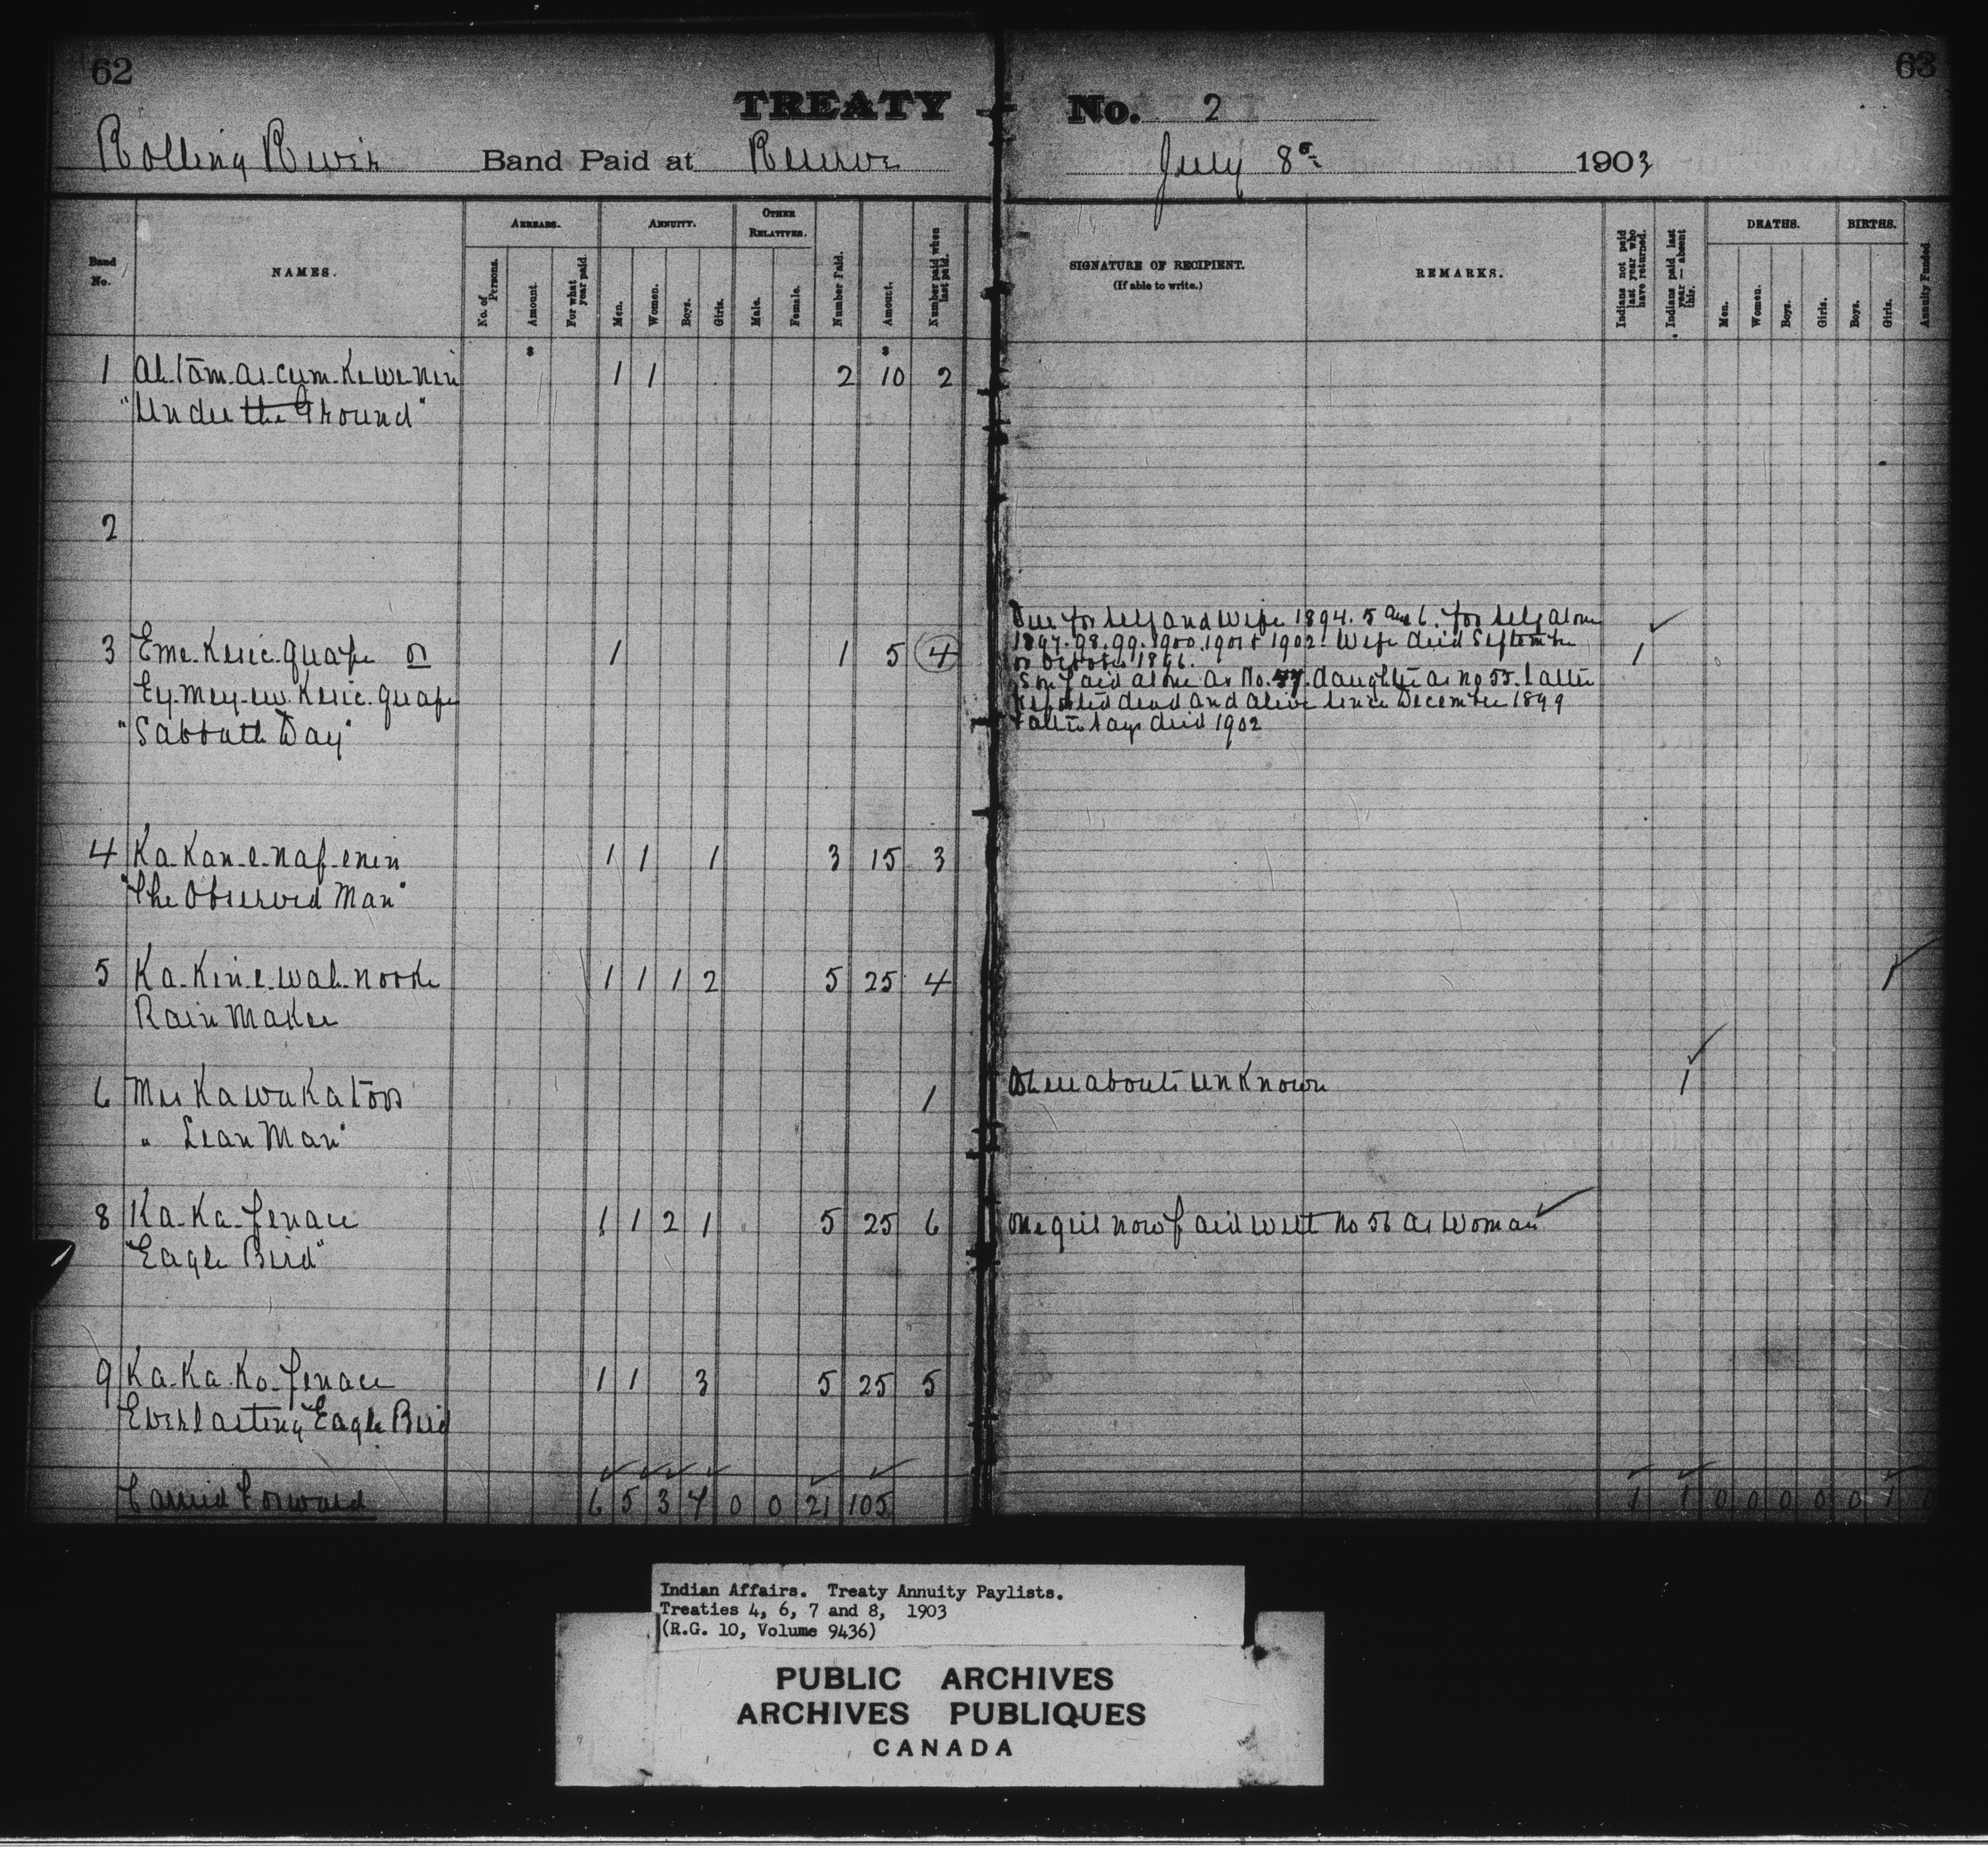 62
63
TREATY No. 2
Rolling River Band Paid at Reserve July 8th 1903
Band No.
NAMES.
ARREARS.
No. of Persons.
Amount.
For what year paid.
ANNUITY.
Men.
Women.
Boys.
Girls.
OTHER RELATIVES.
Male.
Female.
Number Paid.
Amount.
Number paid when last paid.
SIGNATURE OF RECIPIENT.
(If able to write.)
REMARKS.
Indians not paid last year who have returned.
Indians paid last year — absent this.
DEATHS.
Men.
Women.
Boys.
Girls.
BIRTHS.
Boys.
Girls.
Annuity Funded
$ $
1 Ah.tom.as.cum.Ke.we.nin 1 1 2 10 2
"Under the Ground"
2
Due for self and wife 1894. 5 and 6. for self alone
3 Eme.Kesic.quape or 1 1 5 4 1897.98.99.1900.1901 & 1902. Wife died September 1
or October 1896.
Ey.mey.ew.Kesic.quape Son paid alone as No. 47. daughter as no 55. latter
reported dead and alive since December 1899
"Sabbath Day" Father says died 1902
4 Ka-Kan-e-nap-enin 1 1 1 3 15 3
"The Observed Man"
5 Ka-Kin-e-wah-nooke 1 1 1 2 5 25 4 1
Rain Maker
6 Mus Ka wu Ka toos 1 Whereabouts unknown 1
" Lean Man"
8 Ka-Ka-penace 1 1 2 1 5 25 6 One girl now paid with no 56 as woman
"Eagle Bird"
9 Ka-Ka-Ko-penace 1 1 3 5 25 5
Everlasting Eagle Bird
Carried Forward 6 5 3 7 0 0 21 105 1 1 0 0 0 0 0 1 0
Indian Affairs. Treaty Annuity Paylists.
Treaties 4, 6, 7 and 8, 1903
(R.G. 10, Volume 9436)
PUBLIC ARCHIVES
ARCHIVES PUBLIQUES
CANADA